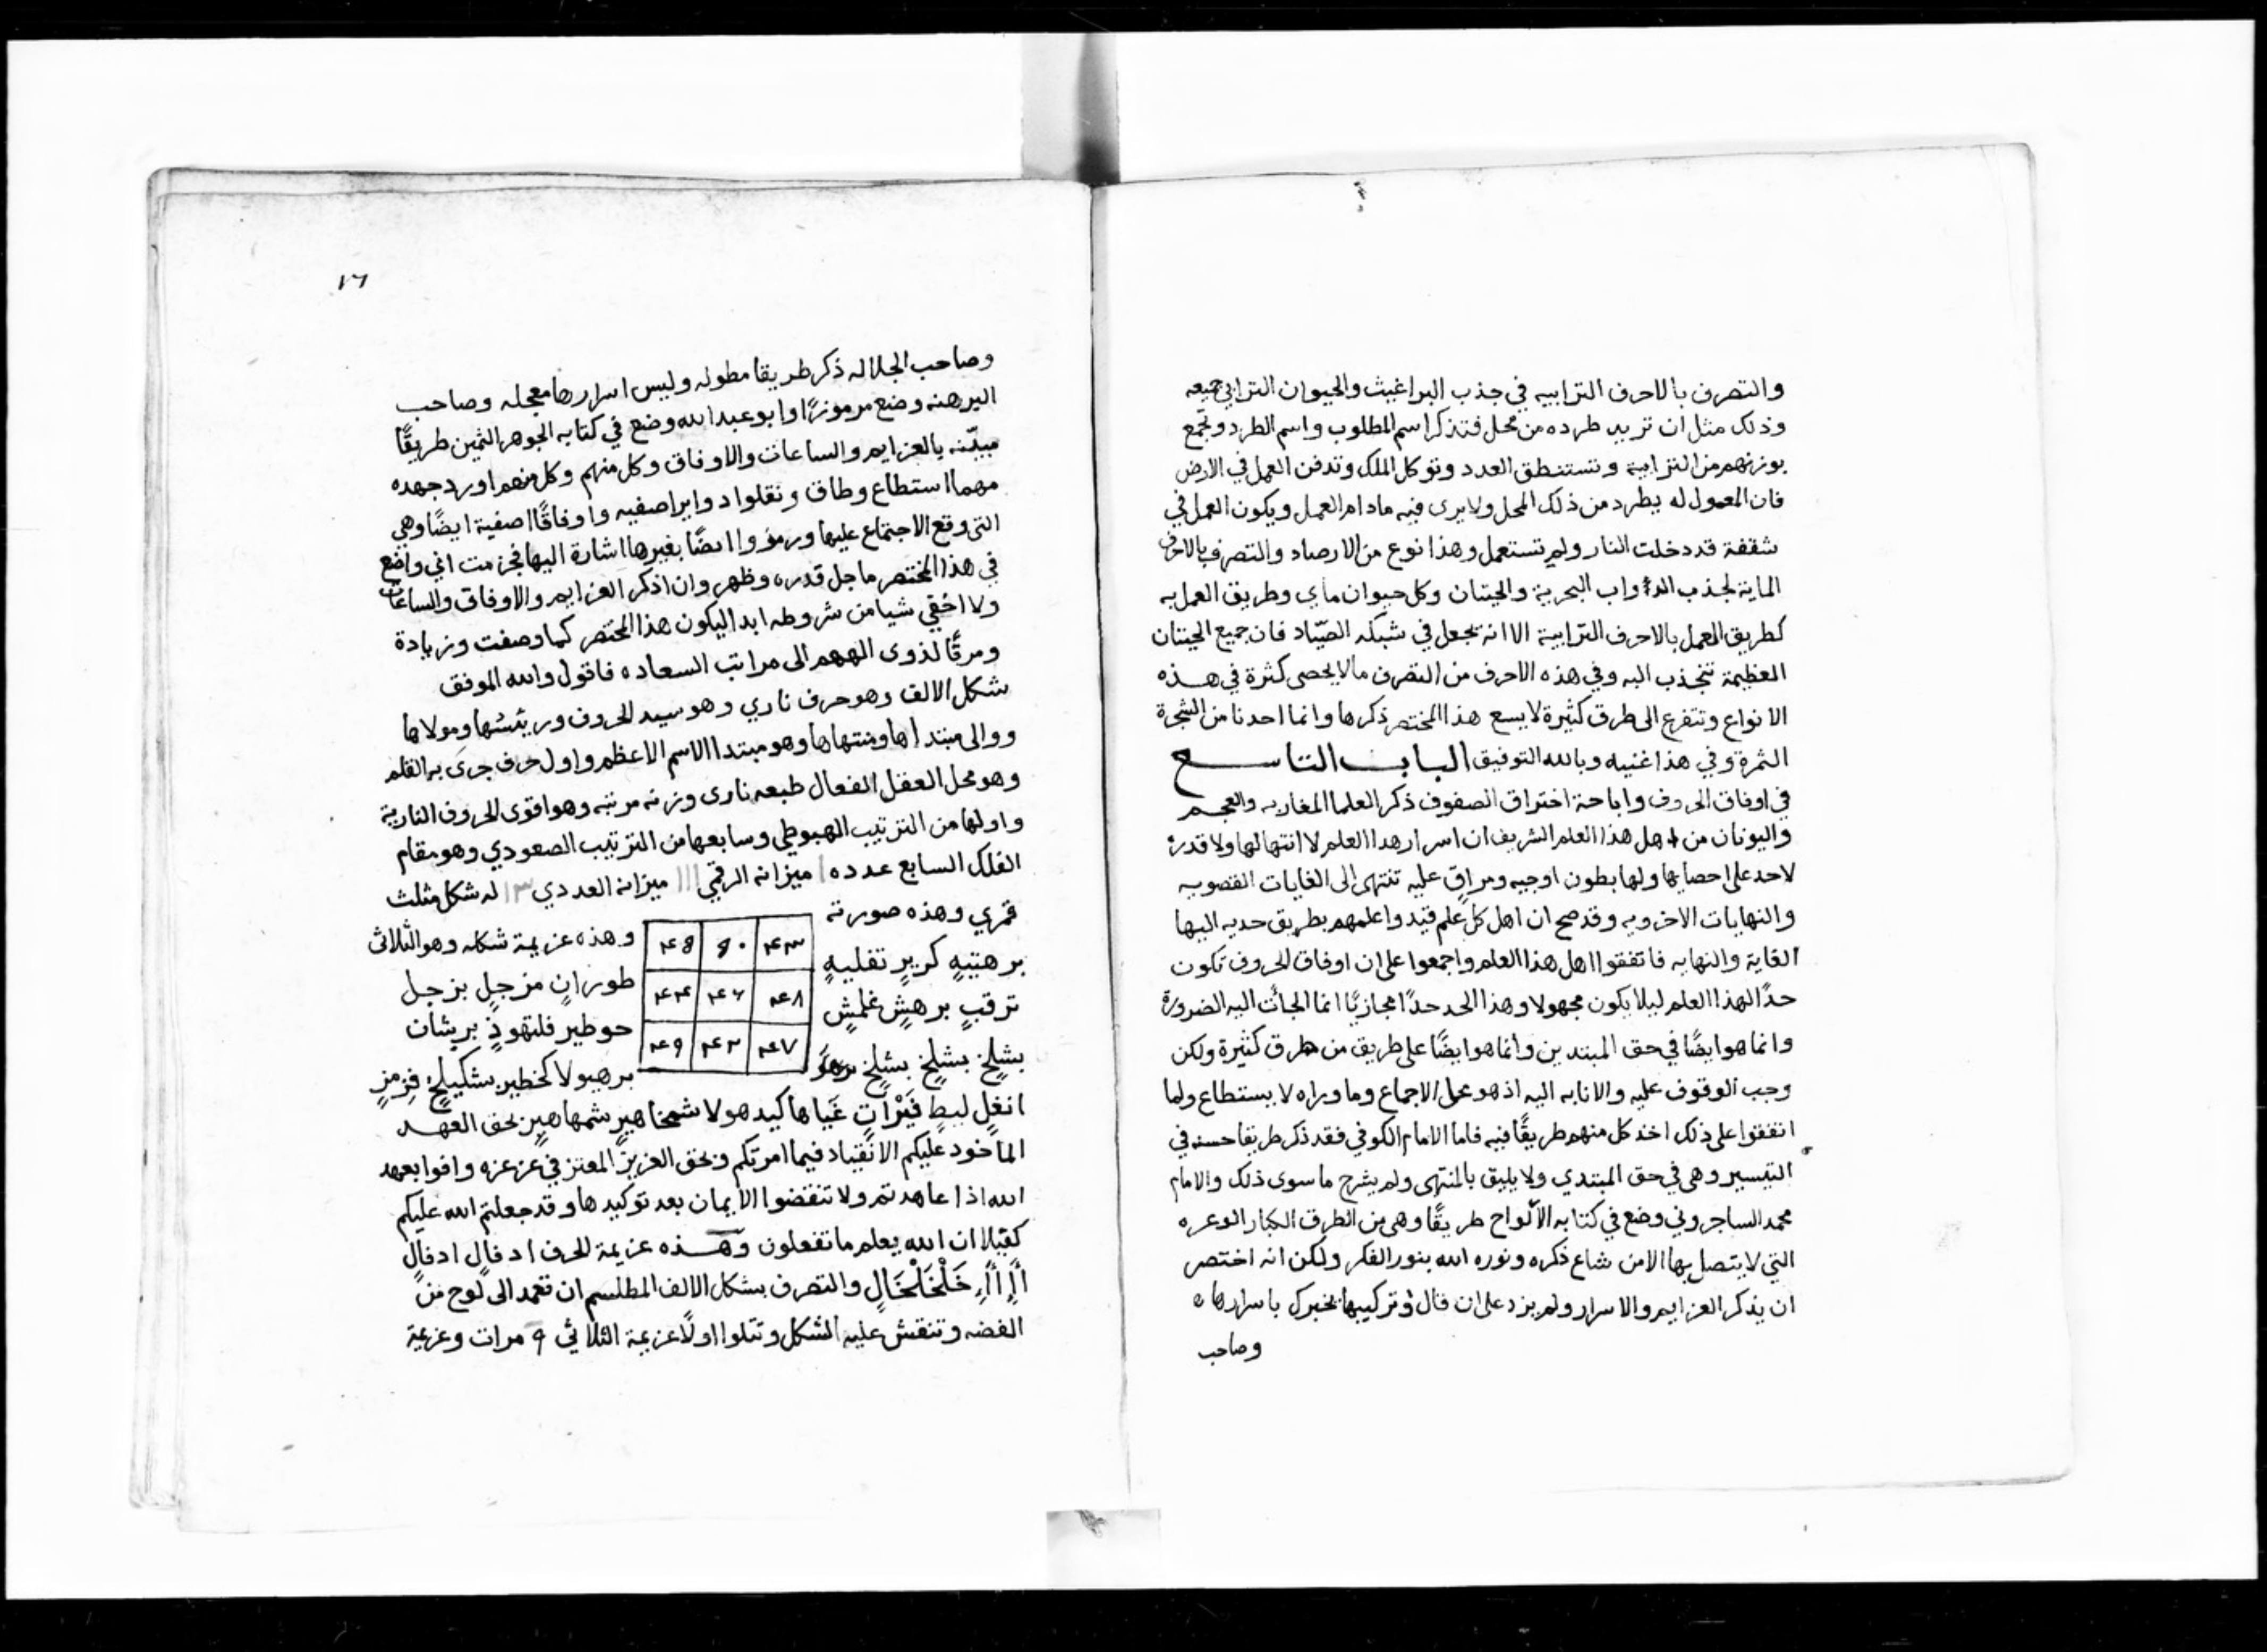 والتصرف بالاحرف الترابيه في جذب البراغيث والحيوان الترابي جميعه
وذلك مثل ان تريد طرده من محل فتذكر اسم المطلوب واسم الطرد وتجمع
بوزنهم من الترابية وتستنطق العدد وتوكل الملك وتدفن العمل في الارض
فان المعمول له يطرد من ذلك المحل ولا يرى فيه مادام العمل ويكون العمل في
شقفة قد دخلت النار ولم تستعمل وهذا نوع من الارصاد والتصرف بالاحرف
الماية لجذب الدواب البحرية والحيتان وكل حيوان ماي وطريق العمل به
كطريق العمل بالاحرف الترابية الا انه يجعل في شبكه الصيّاد فان جميع الحيتان
العظيمة تنجذب اليه وفي هذه الاحرف من التصرف ما لا يحصى كثرة في هذه
الانواع وتتفرع الى طرق كثيرة لا يسع هذا المختصر ذكرها وانما احدنا من الشجرة
الثمرة وفي هذا غنيه وبالله التوفيق الباب التاسع
في اوفاق الحروف واباحة اختراق الصفوف ذكر العلما المغاربه والعجم
واليونان من اهل هذا العلم الشريف ان اسرار هذا العلم لا انتها لها ولا قدرة
لاحد على احصايها ولها بطون اوجيه ومراقٍ عليه تنتهى الى الغايات القصويه
والنهايات الاخرويه وقد صح ان اهل كل علم قيدوا علمهم بطريق حديه اليها
الغاية والنهايه فاتفقوا اهل هذا العلم واجمعوا على ان اوفاق الحروف تكون
حدًا لهذا العلم ليلا يكون مجهولا وهذا الحد حدًا مجازيًا انما الجأت اليه الضرورة
وانما هو ايضًا في حق المبتدين وانما هو ايضًا على طريق من طرق كثيرة ولكن
وجب الوقوف عليه والانابه اليه اذ هو محل الاجماع وما وراه لا يستطاع ولما
اتفقوا على ذلك اخذ كل منهم طريقًا فيه فاما الامام الكوفي فقد ذكر طريقا حسنه في
التيسير وهى في حق المبتدي ولا يليق بالمنتهى ولم يشرح ما سوى ذلك والامام
محمد الساجروني وضع في كتابه الألواح طريقًا وهى من الطرق الكبار الوعره
التي لا يتصل بها الا من شاع ذكره ونوره الله بنور الفكر ولكن انه اختصر
ان يذكر العزايم والاسرار ولم يزد على ان قال وتركيبها يخبرك باسرارها
وصاحب
١٦
وصاحب الجلاله ذكر طريقا مطوله وليس اسرارها معجله وصاحب
البرهنه وضع مرموزًا وابو عبد الله وضع في كتابه الجوهر الثمين طريقًا
مبيّنه بالعزايم والساعات والاوفاق وكل منهم وكل منهم اورد جهده
مهما استطاع وطاق ونقلوا دواير اصفيه واوفاقًا اصفية ايضًا وهي
التى وقع الاجتماع عليها ورمزوا ايضًا بغيرها اشارة اليها فجزمت اني واضع
في هذا المختصر ما جل قدره وظهر وان اذكر العزايم والاوفاق والساعات
ولا اخفي شيا من شروطه ابدا ليكون هذا المختصر كما وصفت وزيادة
ومرقًا لذوى الهمم الى مراتب السعاده فاقول والله الموفق
شكل الالف وهو حرف ناري وهو سيد الحروف ورييسها ومولاها
ووالى مبتداها ومنتهاها وهو مبتدا الاسم الاعظم واول حرف جرى به القلم
وهو محل العقل الفعال طبعه نارى وزنه مرتبه وهو اقوى الحروف النارية
واولها من الترتيب الهبوطي وسابعها من الترتيب الصعودي وهو مقام
الفلك السابع عدده ١ ميزانه الرقمي ١١١ ميزانه العددي ١٣ له شكل مثلث
قمري وهذه صورته
٤٣ ٥٠ ٤٥
٤٨ ٤٦ ٤٤
٤٧ ٤٢ ٤٩
وهذه عزيمة شكله وهو الثلاثى
برهتيهٍ كريرٍ تفليهٍ طورانٍ مزجلٍ بزجل
ترقبٍ برهشٍ غلمشٍ حوطير فلنهودٍ برشان
بشلخ بشلخ بشلخ برهيولا كخطير بشكيلخ قزمزٍ
انغلٍ لبيطٍ قَبْرَاتٍ غَياها كيدهولا شمخاهيرٍ شمهاهيرٍ بحق العهد
الماخود عليكم الانقياد فيما امرتكم وبحق العزيز المعتز في عز عزه وافوا بعهد
الله اذا عاهدتم ولا تنقضوا الايمان بعد توكيدها وقد جعلتم الله عليكم
كفيلا ان الله يعلم ما تفعلون وهذه عزيمة الحرف ادفالٍ ادفالٍ
خَلْخَلْخَالٍ والتصرف بشكل الالف المطلسم ان تعمد الى لوح من
الفضه وتنقش عليه الشكل وتتلوا اولًا عزيمة الثلاثي ٩ مرات وعزيمة